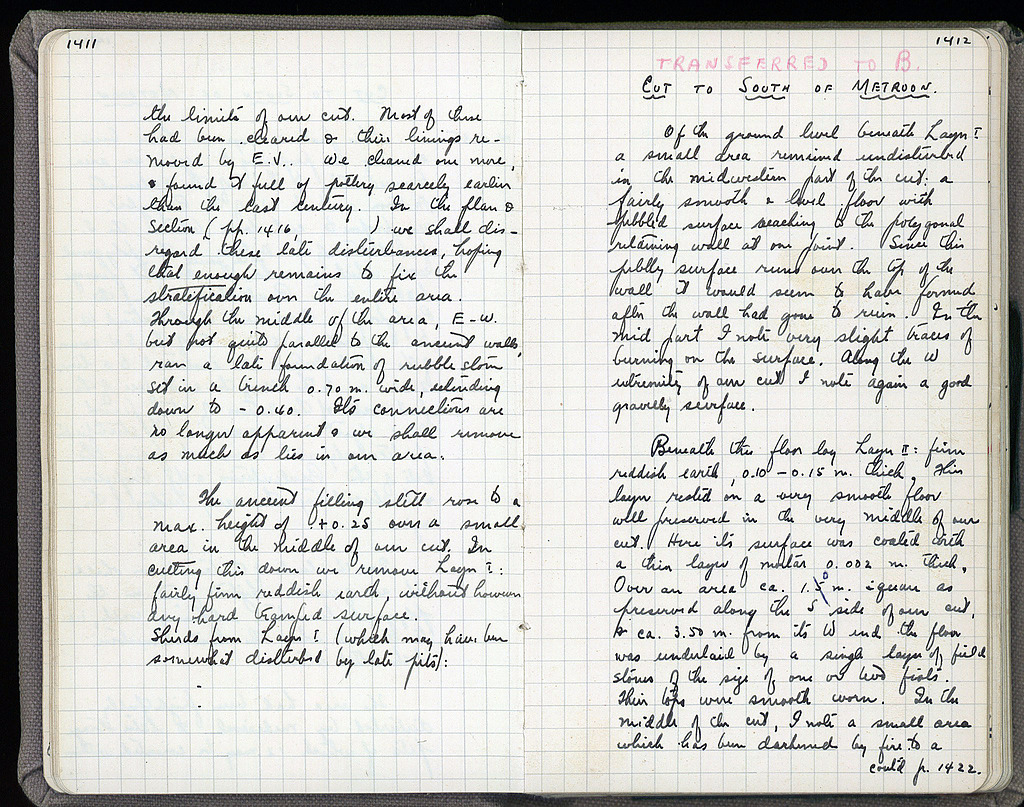 1411
the limits of our cut. Most of these
had been cleared & their linings re-
moved by E.V.. We cleaned one more,
& found it full of pottery scarcely earlier
than the last century. In the plan &
section (pp. 1416, ) we shall dis-
regard these late disturbances, hoping
that enough remains to fix the
stratification over the entire area.
Through the middle of the area, E-W.
but not quite parallel to the ancient walls,
ran a late foundation of rubble stone
set in a trench 0.70 m. wide, extending
down to - 0.40. Its connections are
no longer apparent & we shall remove
as much as lies in our area.
The ancient filling still rose to a
max. height of +0.25 over a small
area in the middle of our cut. In
cutting this down we remove Layer I:
fairly firm reddish earth, without however
any hard tramped surface.
Sherds from Layer I (which may have been
somewhat disturbed by late pits):
1412
TRANSFERRED TO B.
CUT TO SOUTH OF METROON.
Of the ground level beneath Layer I
a small area remained undisturbed
in the midwestern part of the cut: a
fairly smooth & level floor with
pebbled surface reaching to the polygonal
retaining wall at one point. Since this
pebbly surface runs over the top of the
wall it would seem to have formed
after the wall had gone to ruin. In the
mid part I note very slight traces of
burning on the surface. Along the W
extremity of our cut I note again a good
gravelly surface.
Beneath this floor lay Layer II: firm
reddish earth, 0.10 - 0.15 m. thick. This
layer rested on a very smooth floor
well preserved in the very middle of our
cut. Here its surface was coated with
a thin layer of mortar 0.002 m. thick,
Over an area ca. 1.0 m. square as
preserved along the S side of our cut,
& ca. 3.50 m. from its W end the floor
was underlaid by a single layer of field
stones of the size of one or two fists.
Their tops were smooth worn. In the
middle of the cut, I note a small area
which has been darkened by fire to a
cont'd p. 1422.